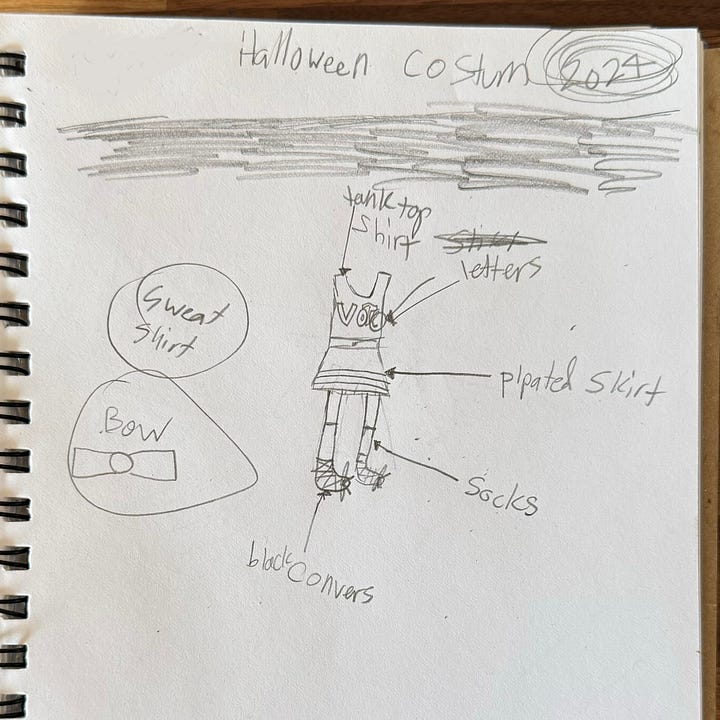 Halloween Costum 2024
tank top
Shirt
letters
VOTE
Sweat
Shirt
plpated Skirt
Bow
Socks
black Convers